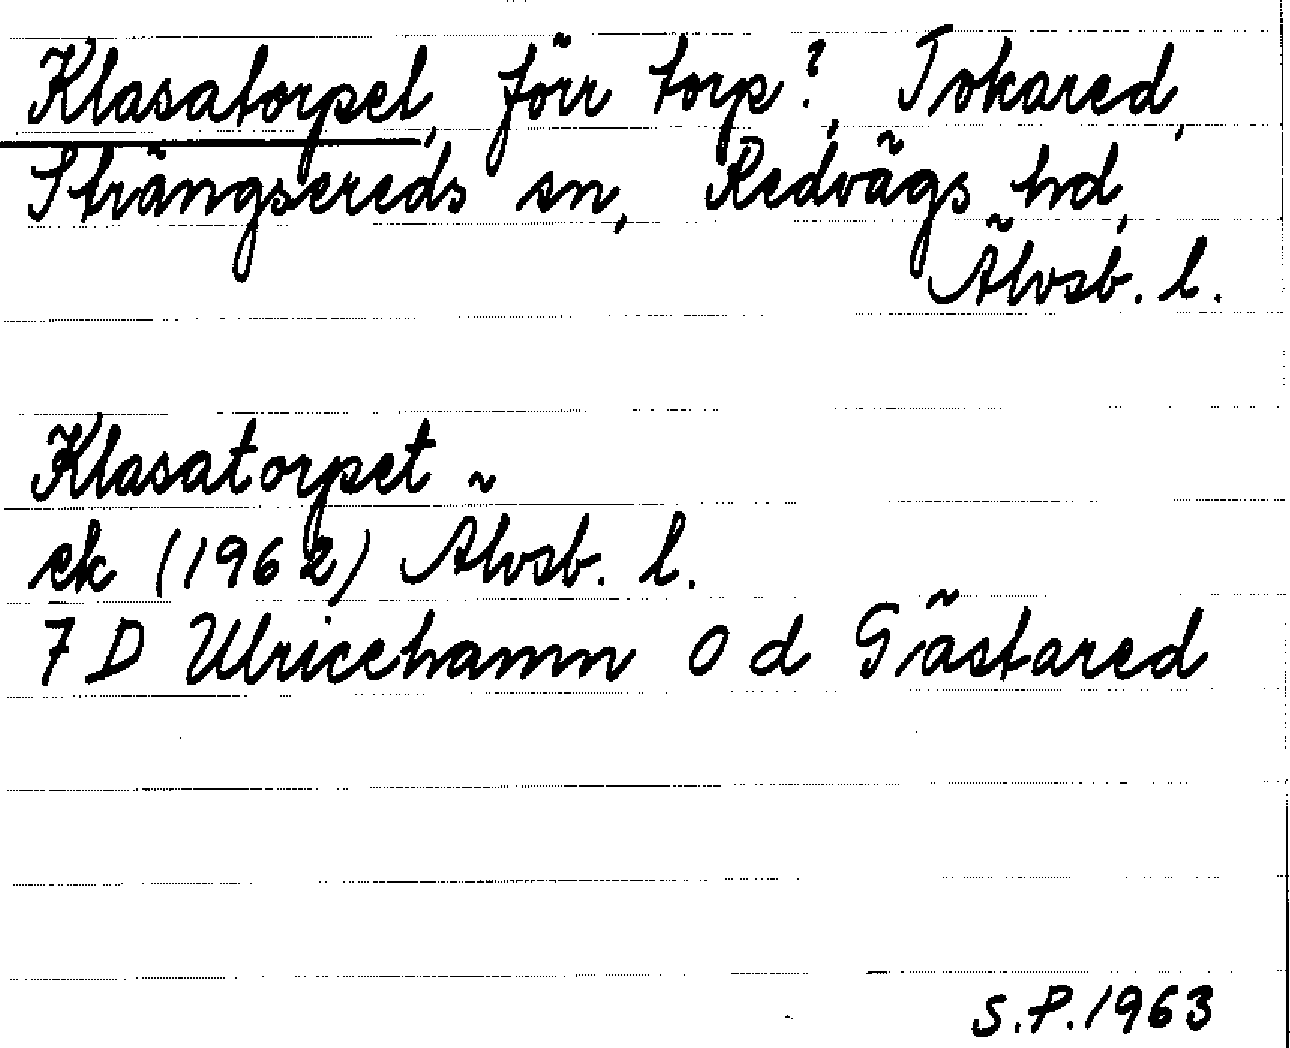 Klasatorpet, förr torp?, Tokared,
Strängsereds sn, Redvägs hd,
Älvsb. l.
Klasatorpet
ek (1962) Älvsb. l.
7 D Ulricehamn 0 d Gästared
S.P. 1963